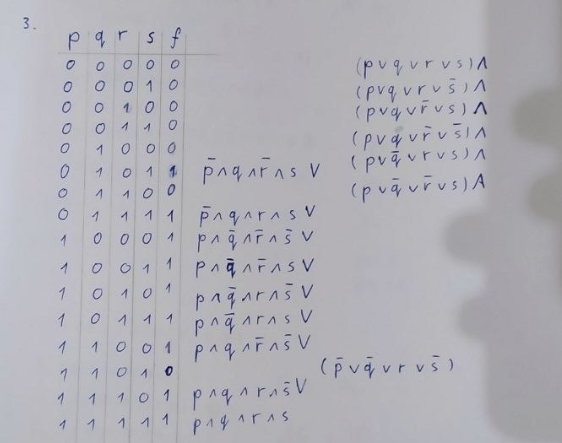 3.
p q r s f
0 0 0 0 0 (p ∨ q ∨ r ∨ s) ∧
0 0 0 1 0 (p ∨ q ∨ r ∨ s̄) ∧
0 0 1 0 0 (p ∨ q ∨ r̄ ∨ s) ∧
0 0 1 1 0 (p ∨ q ∨ r̄ ∨ s̄) ∧
0 1 0 0 0 (p ∨ q̄ ∨ r ∨ s) ∧
0 1 0 1 1 p̄ ∧ q ∧ r̄ ∧ s ∨
0 1 1 0 0 (p ∨ q̄ ∨ r̄ ∨ s) ∧
0 1 1 1 1 p̄ ∧ q ∧ r ∧ s ∨
1 0 0 0 1 p ∧ q̄ ∧ r̄ ∧ s̄ ∨
1 0 0 1 1 p ∧ q̄ ∧ r̄ ∧ s ∨
1 0 1 0 1 p ∧ q̄ ∧ r ∧ s̄ ∨
1 0 1 1 1 p ∧ q̄ ∧ r ∧ s ∨
1 1 0 0 1 p ∧ q ∧ r̄ ∧ s̄ ∨
1 1 0 1 0 (p̄ ∨ q̄ ∨ r ∨ s̄)
1 1 1 0 1 p ∧ q ∧ r ∧ s̄ ∨
1 1 1 1 1 p ∧ q ∧ r ∧ s